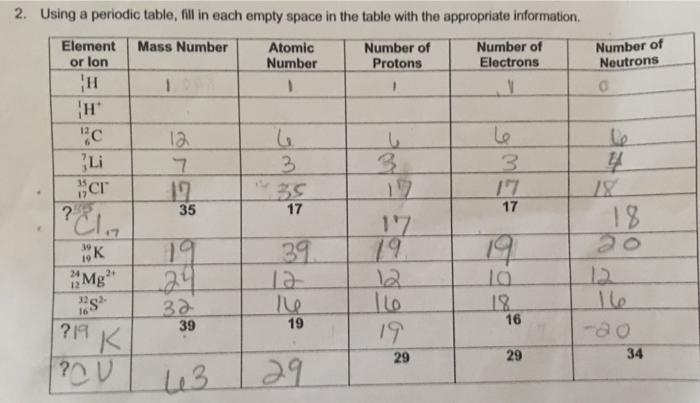 2. Using a periodic table, fill in each empty space in the table with the appropriate information.
Element or Ion Mass Number Atomic Number Number of Protons Number of Electrons Number of Neutrons
¹₁H 1 1 1 1 0
¹₁H⁺
¹²₆C 12 6 6 6 6
⁷₃Li 7 3 3 3 4
³⁵₁₇Cl⁻ 17 35 17 17 18
? Cl 17 35 17 17 17 18
³⁹₁₉K 19 39 19 19 20
²⁴₁₂Mg²⁺ 24 12 12 10 12
³²₁₆S²⁻ 32 16 16 18 16
?19 K 39 19 19 16 -20
?CU 63 29 29 29 34